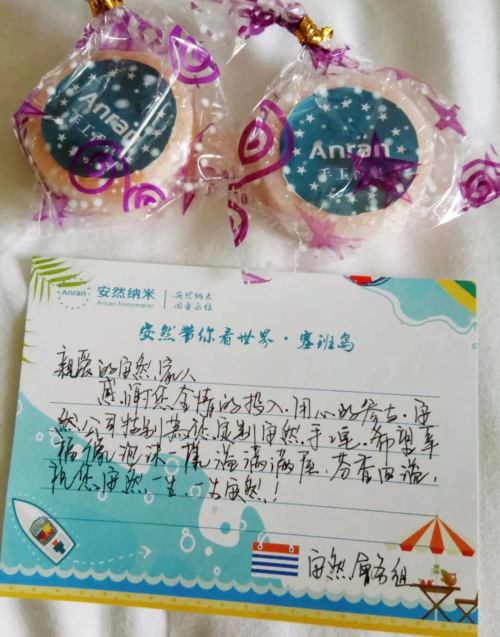 Anran
手工香皂
Anran
手工香皂
Anran
安然纳米
Anran Nanometer
安然纳米
因爱永恒
安然带你看世界·塞班岛
亲爱的安然家人
感谢您全情的投入,用心的付出,安
然公司特别为您定制安然手工皂,希望幸
福像泡沫一样溢满满屋,芬香四溢,
祝您安然一生,一生安然!
安然会务组